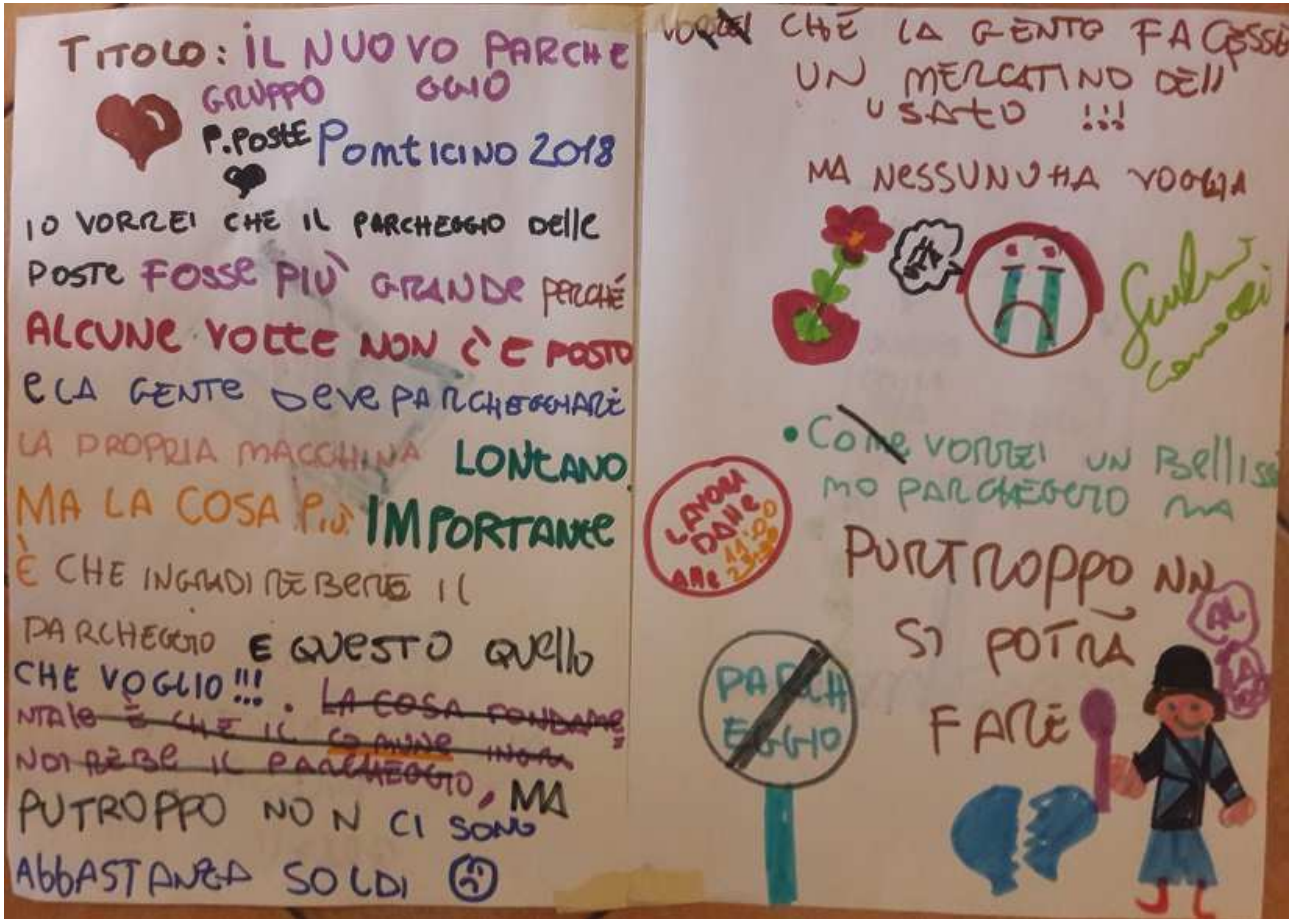 TITOLO: IL NUOVO PARCHE
GGIO
GRUPPO
P.POSTE PONTICINO 2018
IO VORREI CHE IL PARCHEGGIO Delle
POSTE FOSSE PIÙ GRANDE PERCHÉ
ALCUNE VOLTE NON C'È POSTO
E LA GENTE DEVE PARCHEGGIARE
LA PROPRIA MACCHINA LONTANO
MA LA COSA PIÙ IMPORTANTE
È CHE INGRADIREBERE IL
PARCHEGGIO E QUESTO QUELLO
CHE VOGLIO!!!. LA COSA FONDAME
NTALE È CHE IL COMUNE INGRA
NDIREBE IL PARCHEGGIO, MA
PUTROPPO NON CI SONO
ABBASTANZA SOLDI
VORREI CHE LA GENTE FACESSE
UN MERCATINO DELL
USATO !!!
MA NESSUNU HA VOGLIA
• COME VORREI UN BELLISSI
MO PARCHEGGIO MA
PURTROPPO NN
SI POTRÀ
FARE
LAVORI
DALLE
11:00
ALLE
PARCH
EGGIO